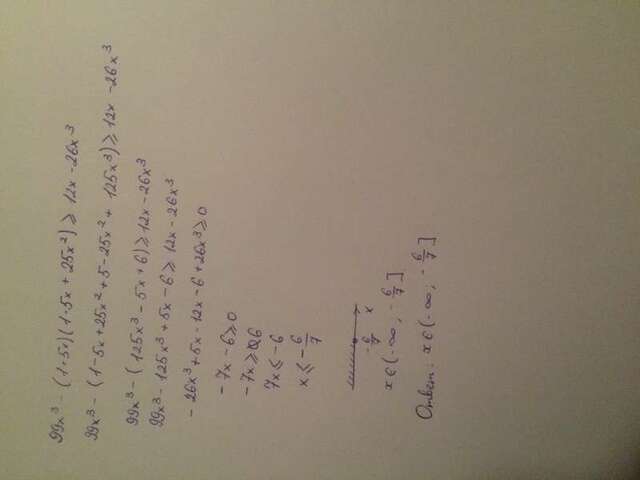 99x³ - (1+5x)(1-5x+25x²) ≥ 12x - 26x³
99x³ - (1-5x+25x²+5-25x²+125x³) ≥ 12x - 26x³
99x³ - (125x³ - 5x + 6) ≥ 12x - 26x³
99x³ - 125x³ + 5x - 6 ≥ 12x - 26x³
-26x³ + 5x - 12x - 6 + 26x³ ≥ 0
-7x - 6 ≥ 0
-7x ≥ 6
7x ≤ -6
x ≤ -6/7
-6/7 x
x ∈ (-∞; -6/7]
Ответ: x ∈ (-∞; -6/7]